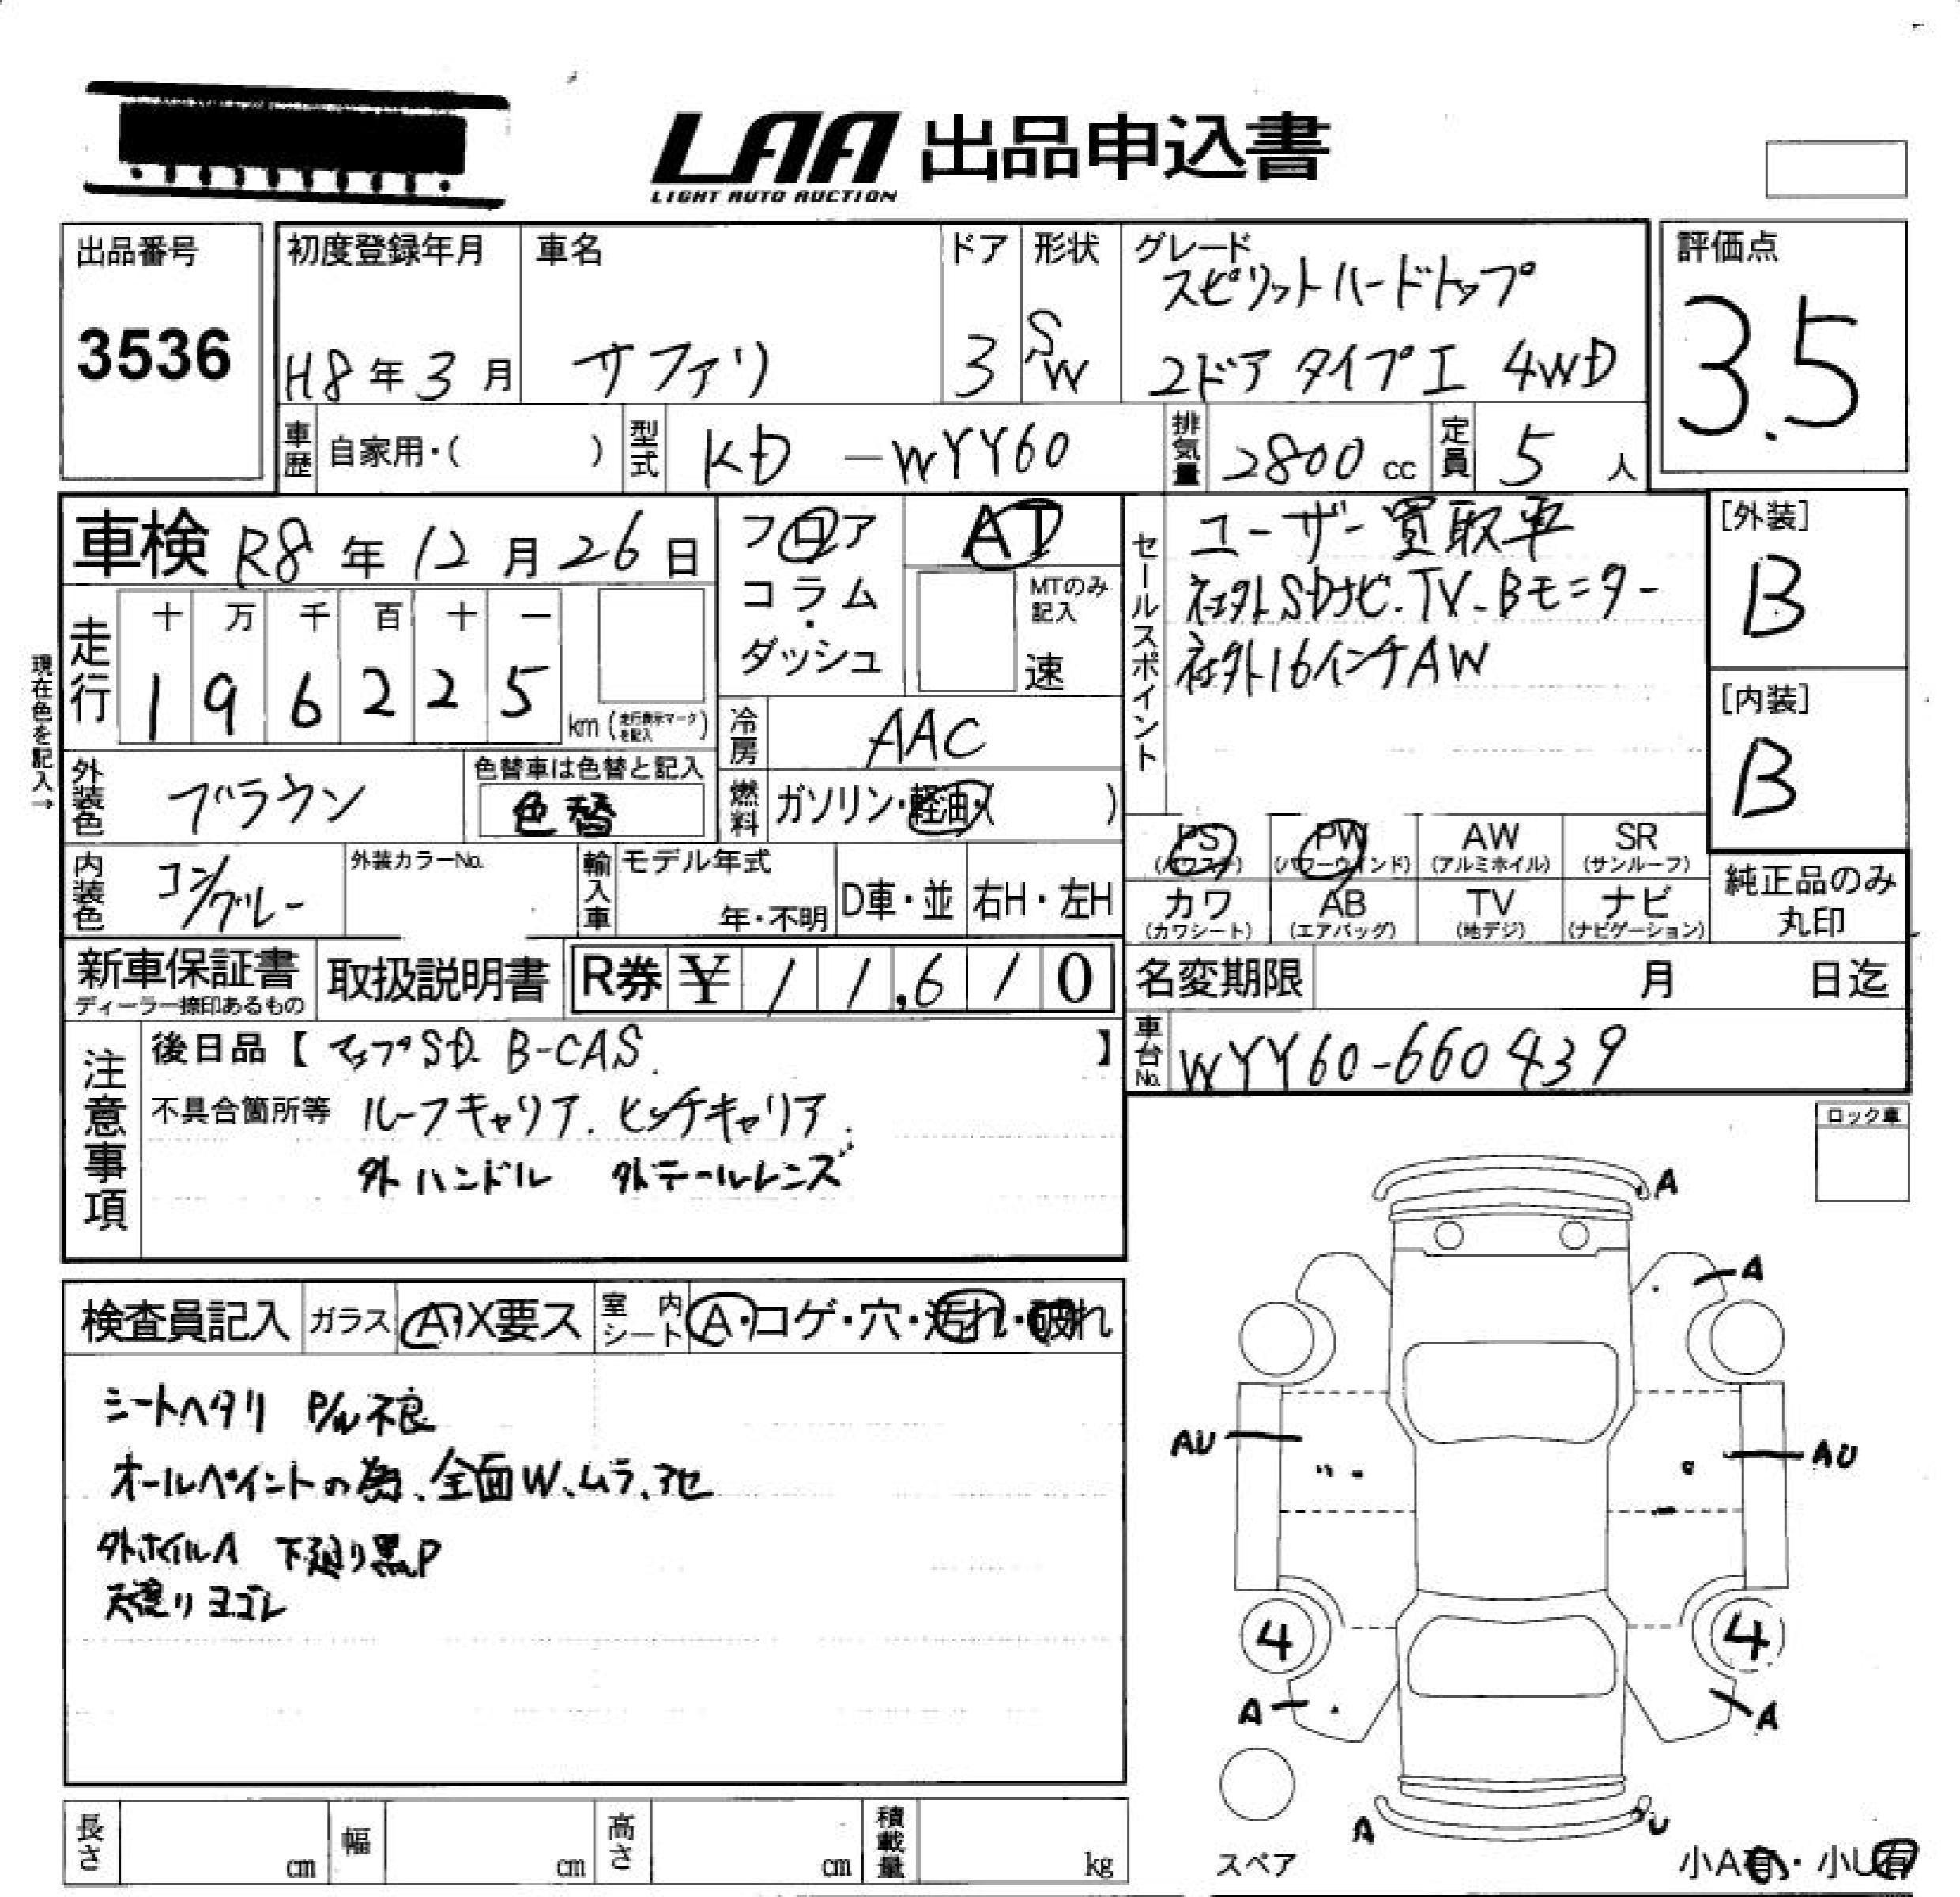 LAA 出品申込書
LIGHT AUTO AUCTION
出品番号
3536
初度登録年月
H8年3月
車名
サファリ
ドア
3
形状
SW
グレード
スピリットハードトップ
2ドア タイプI 4WD
評価点
3.5
車歴 自家用・( )
型式 KD-WYY60
排気量 2800cc
定員 5人
車検 R8年12月26日
フロア
コラム
・
ダッシュ
AT
MTのみ記入
速
セールスポイント
ユーザー買取車
社外SDナビ.TV.Bモニター
社外16インチAW
[外装]
B
[内装]
B
現在色を記入→
走行
十 万 千 百 十 一
1 9 6 2 2 5
km(走行表示マークを記入)
冷房 AAC
外装色 ブラウン
色替車は色替と記入
色替
燃料 ガソリン・軽油・( )
内装色 コン/グレー
外装カラーNo.
輸入車 モデル年式
年・不明
D車・並
右H・左H
PS (パワステ)
PW (パワーウインド)
AW (アルミホイル)
SR (サンルーフ)
カワ (カワシート)
AB (エアバッグ)
TV (地デジ)
ナビ (ナビゲーション)
純正品のみ
丸印
新車保証書
ディーラー捺印あるもの
取扱説明書
R券 ¥11,610
名変期限 月 日迄
車台No. WYY60-660439
注意事項
後日品【マップSD. B-CAS. 】
不具合箇所等 ルーフキャリア. ヒッチキャリア.
外ハンドル 外テールレンズ
ロック車
検査員記入
ガラス A・X要ス
室内シート A・コゲ・穴・汚れ・破れ
シートヘタリ P/W不良
オールペイントの為、全面W、ムラ、アセ
外ホイルA 下廻り黒P
天張リヨゴレ
A
A
AU
AU
4
4
A
A
A
U
スペア
小A有・小U有
長さ cm
幅 cm
高さ cm
積載量 kg